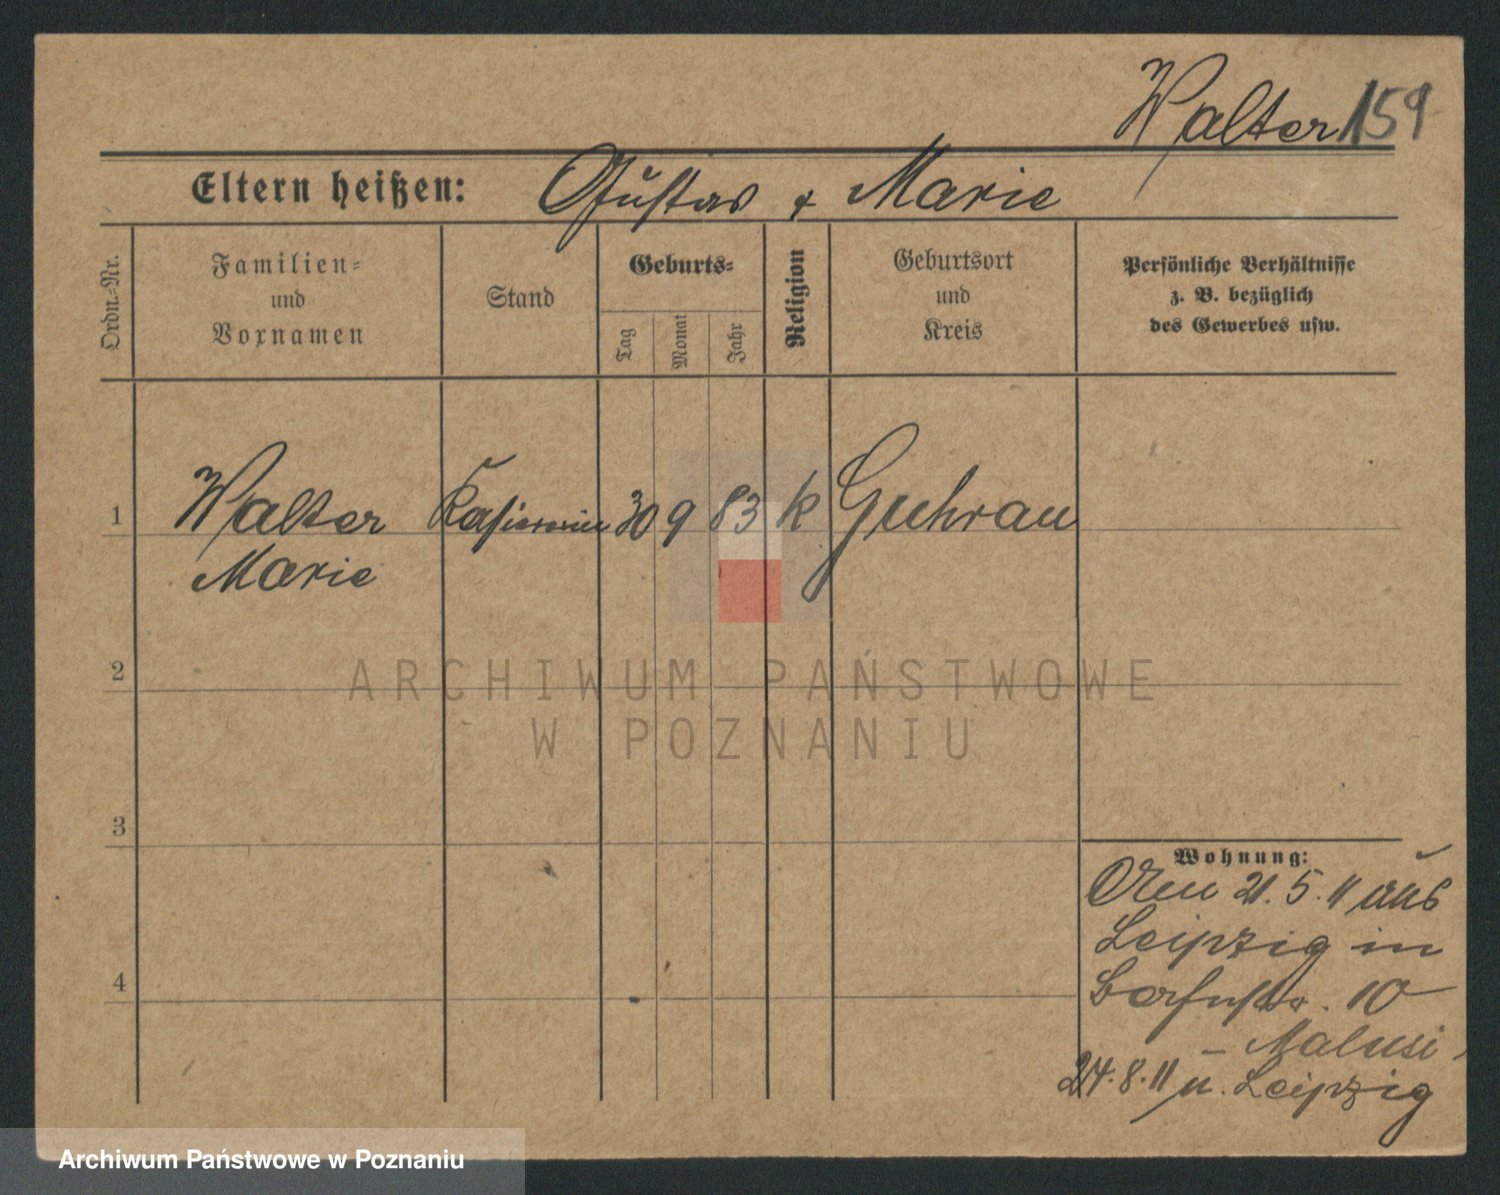 Walter 159
Eltern heißen: Gustav & Marie
Ordn.-Nr.
Familien-
und
Vornamen
Stand
Geburts-
Tag
Monat
Jahr
Religion
Geburtsort
und
Kreis
Persönliche Verhältnisse
z. B. bezüglich
des Gewerbes usw.
1 Walter Kasiererin 30 9 83 k Guhrau
Marie
2
3
4
Wohnung:
21. 5. 11 aus
Leipzig in
10
Malusi
24. 8. 11 n. Leipzig
ARCHIWUM PAŃSTWOWE
W POZNANIU
Archiwum Państwowe w Poznaniu